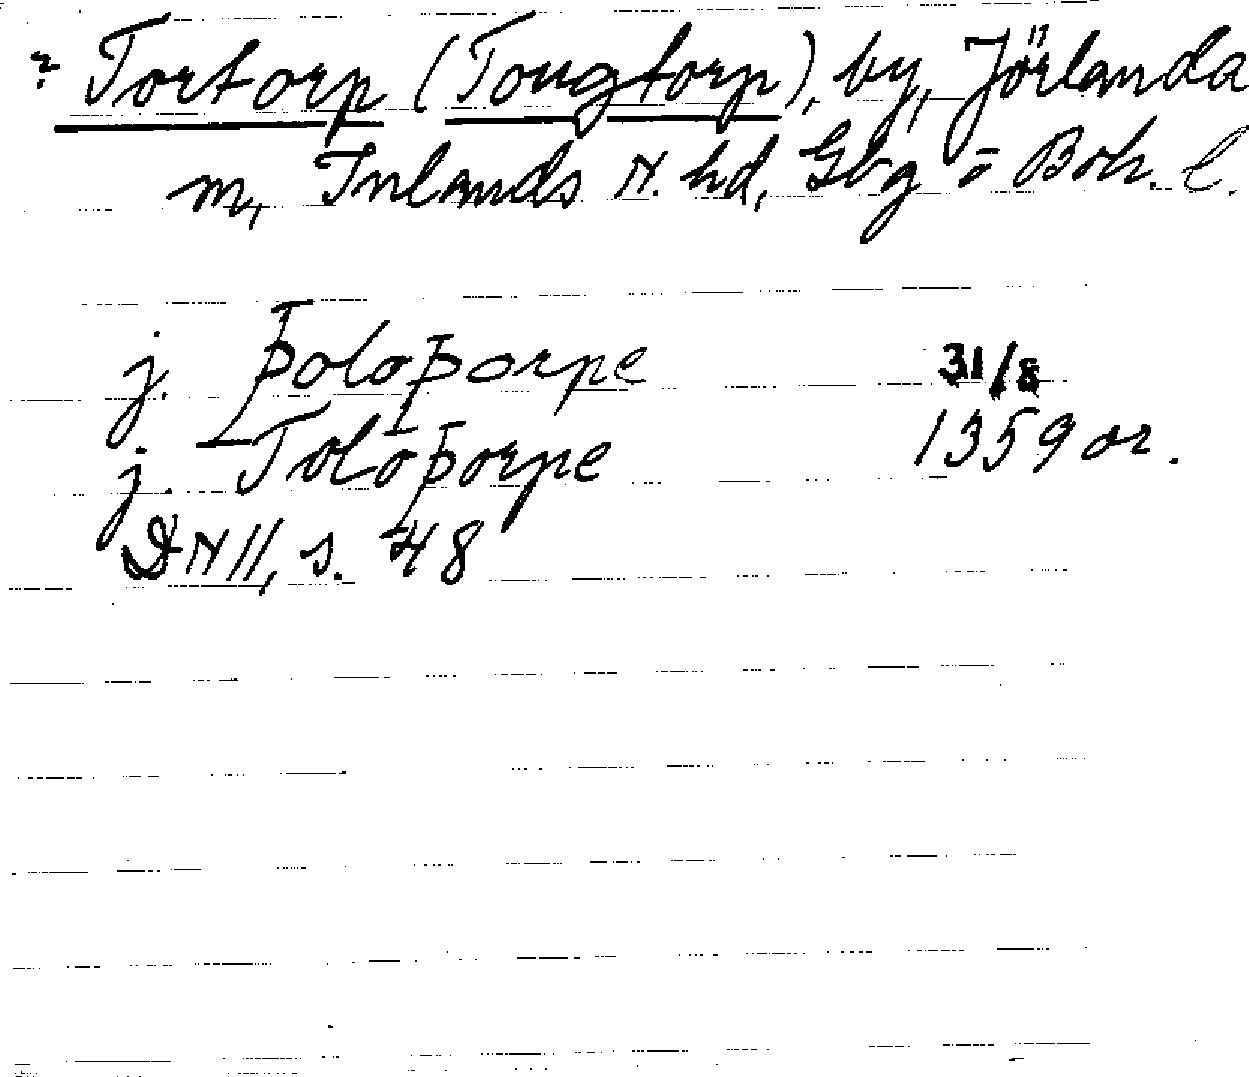 ? Tortorp (Tougtorp), by, Jörlanda
m, Inlands N. hd, Gbg o Boh. l.
j. Þoloþorpe 31/8
j. Toloþorpe 1359 or.
DN II, s. 48